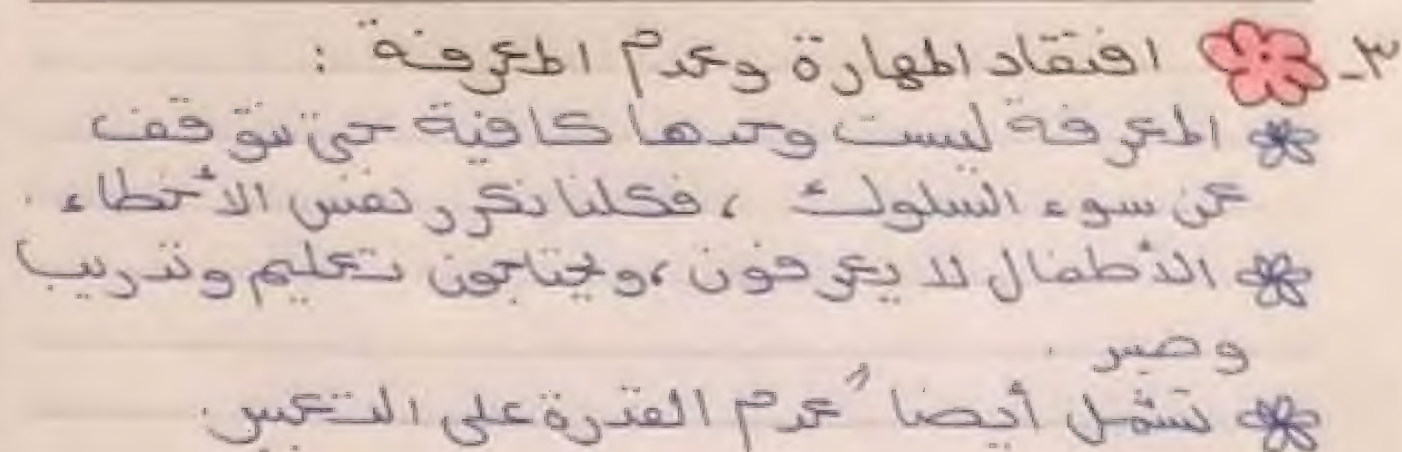 ٣- افتقاد المهارة وعدم المعرفة :
المعرفة ليست وحدها كافية حتى نتوقف
عن سوء السلوك ، فكلنا نكرر نفس الأخطاء .
الأطفال لا يعرفون ، ويحتاجون تعليم وتدريب
وصبر .
تشمل أيضاً عدم القدرة على التعبير .